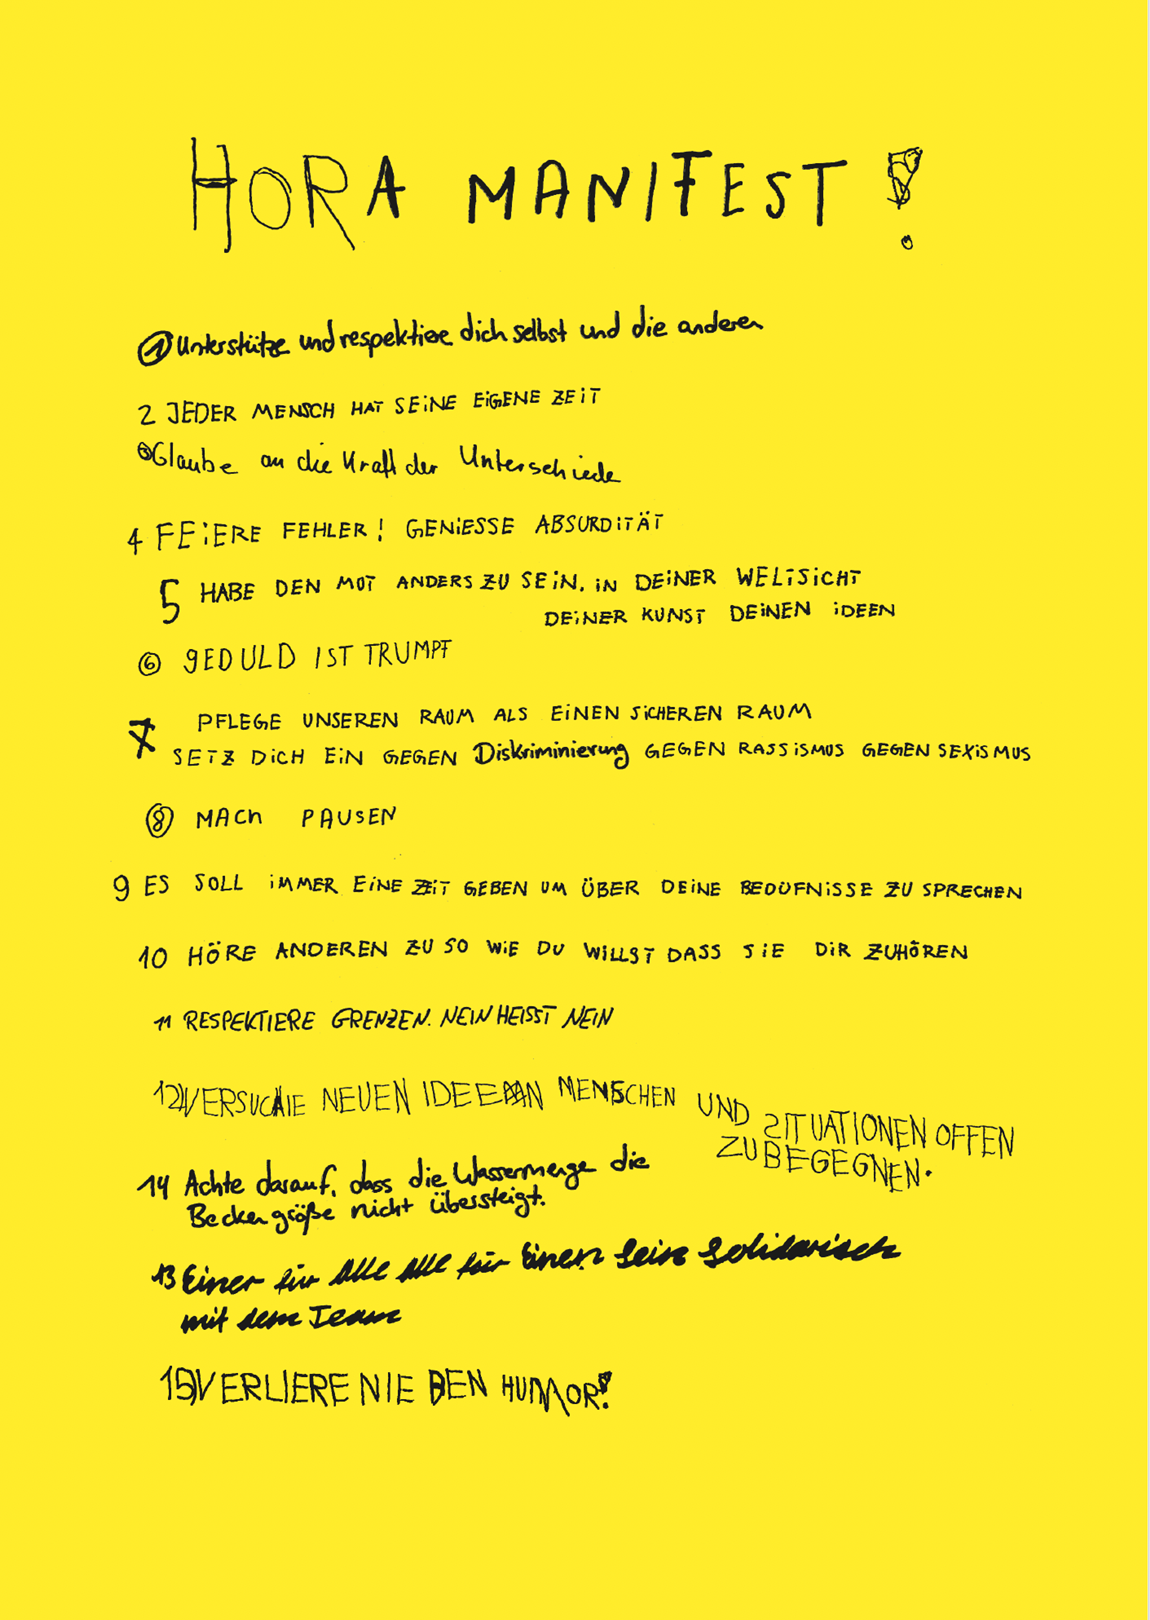 HORA MANIFEST!
1 Unterstütze und respektiere dich selbst und die anderen
2 JEDER MENSCH HAT SEINE EIGENE ZEIT
3 Glaube an die Kraft der Unterschiede
4 FEIERE FEHLER! GENIESSE ABSURDITÄT
5 HABE DEN MUT ANDERS ZU SEIN. IN DEINER WELTSICHT
DEINER KUNST DEINEN IDEEN
6 GEDULD IST TRUMPF
7 PFLEGE UNSEREN RAUM ALS EINEN SICHEREN RAUM
SETZ DICH EIN GEGEN Diskriminierung GEGEN RASSISMUS GEGEN SEXISMUS
8 MACH PAUSEN
9 ES SOLL IMMER EINE ZEIT GEBEN UM ÜBER DEINE BEDÜFNISSE ZU SPRECHEN
10 HÖRE ANDEREN ZU SO WIE DU WILLST DASS SIE DIR ZUHÖREN
11 RESPEKTIERE GRENZEN. NEIN HEISST NEIN
12) VERSUCHE NEUEN IDEEN MENSCHEN UND SITUATIONEN OFFEN
ZU BEGEGNEN.
14 Achte darauf, dass die Wassermenge die
Beckengröße nicht übersteigt.
13 Einer für Alle Alle für Einen Seie Solidarisch
mit dem Team
15) VERLIERE NIE DEN HUMOR!